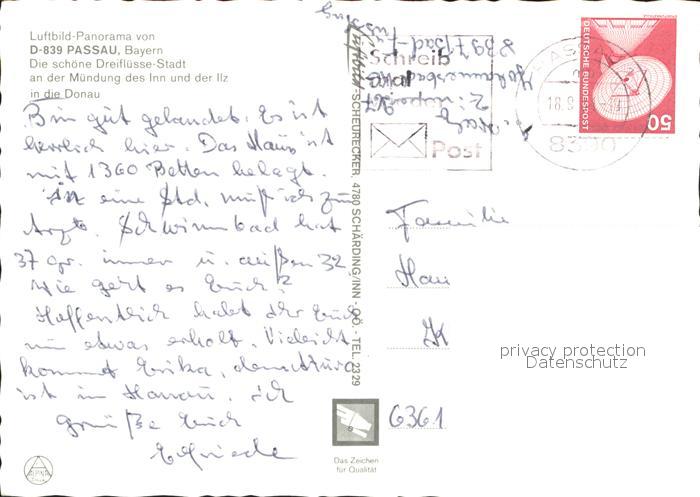 Luftbild-Panorama von
D-839 PASSAU, Bayern
Die schöne Dreiflüsse-Stadt
an der Mündung des Inn und der Ilz
in die Donau
Bin gut gelandet. Es ist
herrlich hier. Das Haus ist
mit 1360 Betten belegt.
In eine Std. muß ich zum
Arzt. Schwimmbad hat
37 gr. innen u. außen 32
Wie geht es Euch?
Hoffentlich habt Ihr Euch
nun etwas erholt. Vieleicht
kommt Erika, denn
ist in Hanau. Ich
grüße Euch
Elfriede
ALPINA
Luftbild-SCHEURECKER, 4780 SCHÄRDING/INN - OÖ. - TEL. 2329
8397 Bad Füssing
Schreib
mal
Post
PASSAU
18.9.
8390
DEUTSCHE BUNDESPOST
50
Familie
6361
privacy protection
Datenschutz
Das Zeichen
für Qualität